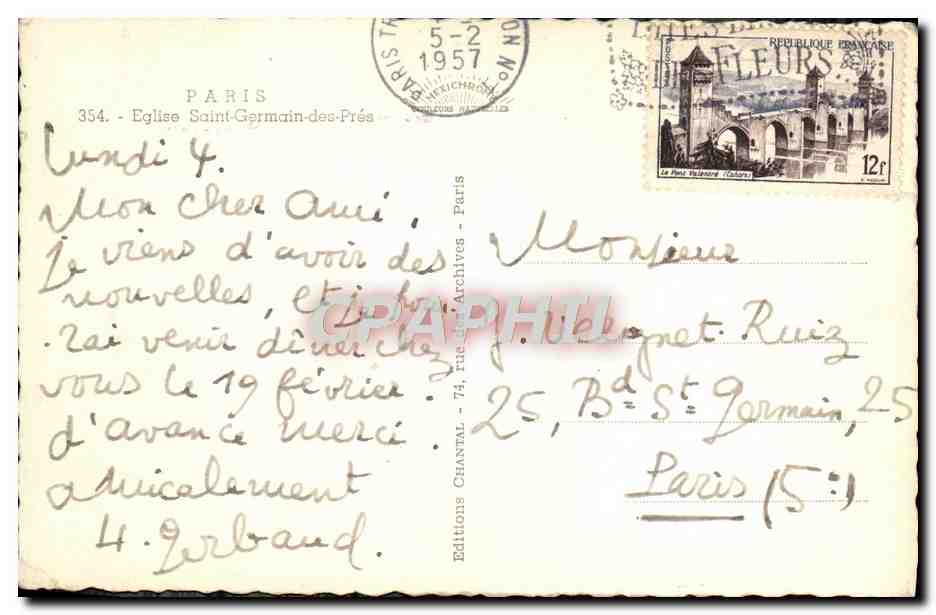 PARIS
354. - Eglise Saint-Germain-des-Prés
Lundi 4.
Mon cher Ami,
je viens d'avoir des
nouvelles, et je pour
rai venir dîner chez
vous le 19 février.
d'avance merci.
amicalement
H. Gerbaud.
Editions CHANTAL - 74, rue des Archives - Paris
PARIS
5-2
1957
HEXICHROME
COULEURS NATURELLES
FLEURS
REPUBLIQUE FRANÇAISE
POSTES
Le Pont Valentré (Cahors)
12f
CPAPHIL
Monsieur
Ruiz
25, Bd St Germain, 25
Paris (5e)